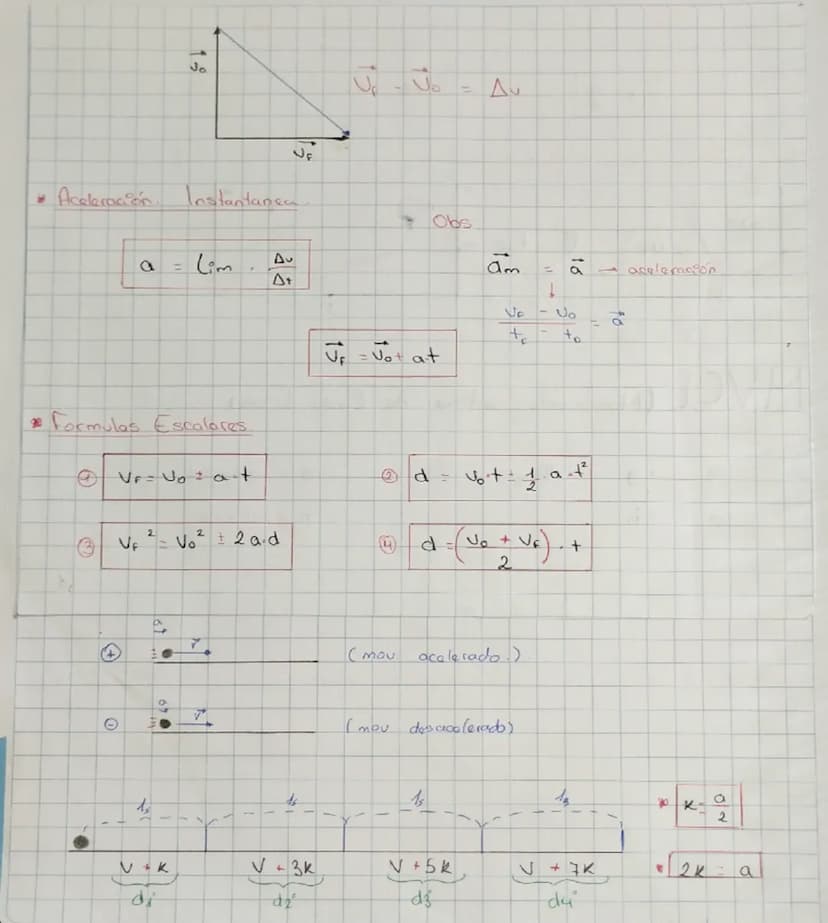 V⃗o
V⃗F - V⃗o = Δv
V⃗F
* Aceleración Instantanea
* Obs
a = Lim . Δv/Δt
a⃗m = a⃗ → aceleración
↓
VF - Vo / tF - to = a⃗
V⃗F = V⃗o + a.t
* Formulas Escalares
① VF = Vo ± a.t
② d = Vo.t ± 1/2 a.t²
③ VF² = Vo² ± 2a.d
④ d = (Vo + VF / 2) . t
a
⊕ v⃗ (mov acelerado.)
a
⊖ v⃗ (mov desacelerado)
1s 1s 1s 1s
* K = a/2
V + K V + 3K V + 5K V + 7K
* 2K = a
d1° d2° d3° d4°